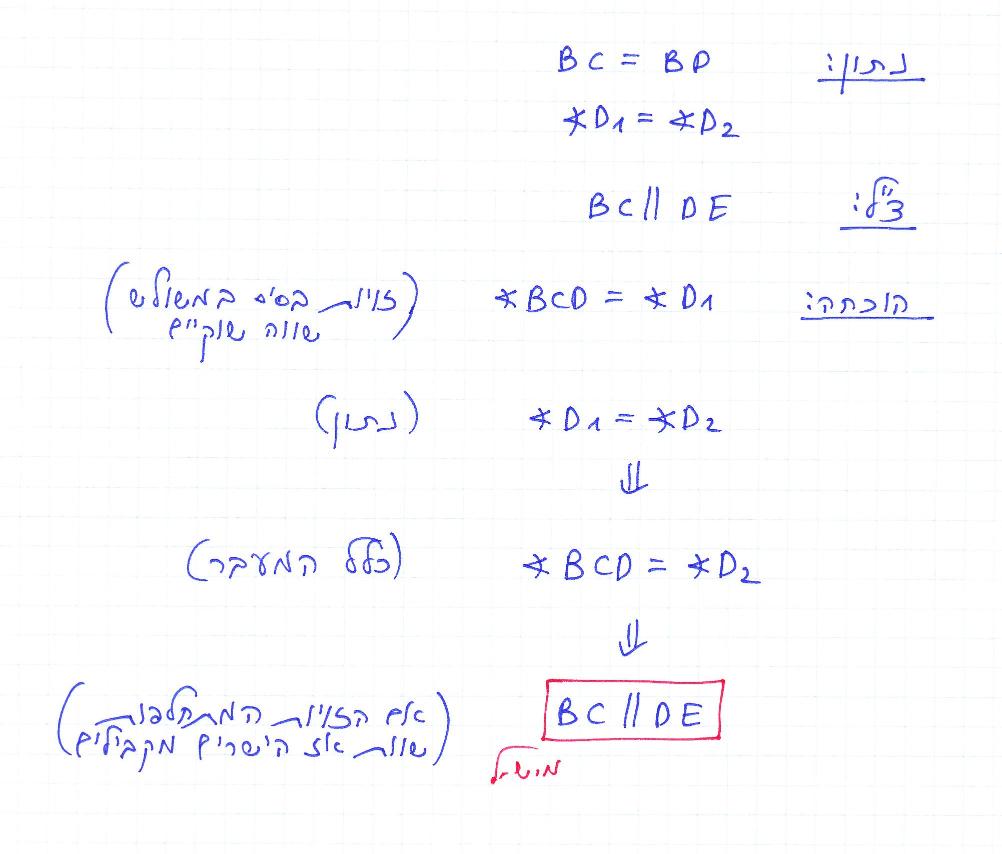 נתון: BC = BD
∢D1 = ∢D2
צ"ל: BC || DE
הוכחה: ∢BCD = ∢D1 (זויות בסיס במשולש
שווה שוקיים)
∢D1 = ∢D2 (נתון)
⇓
∢BCD = ∢D2 (כלל המעבר)
⇓
BC || DE (אם הזויות המתחלפות
שוות אז הישרים מקבילים)
מש"ל